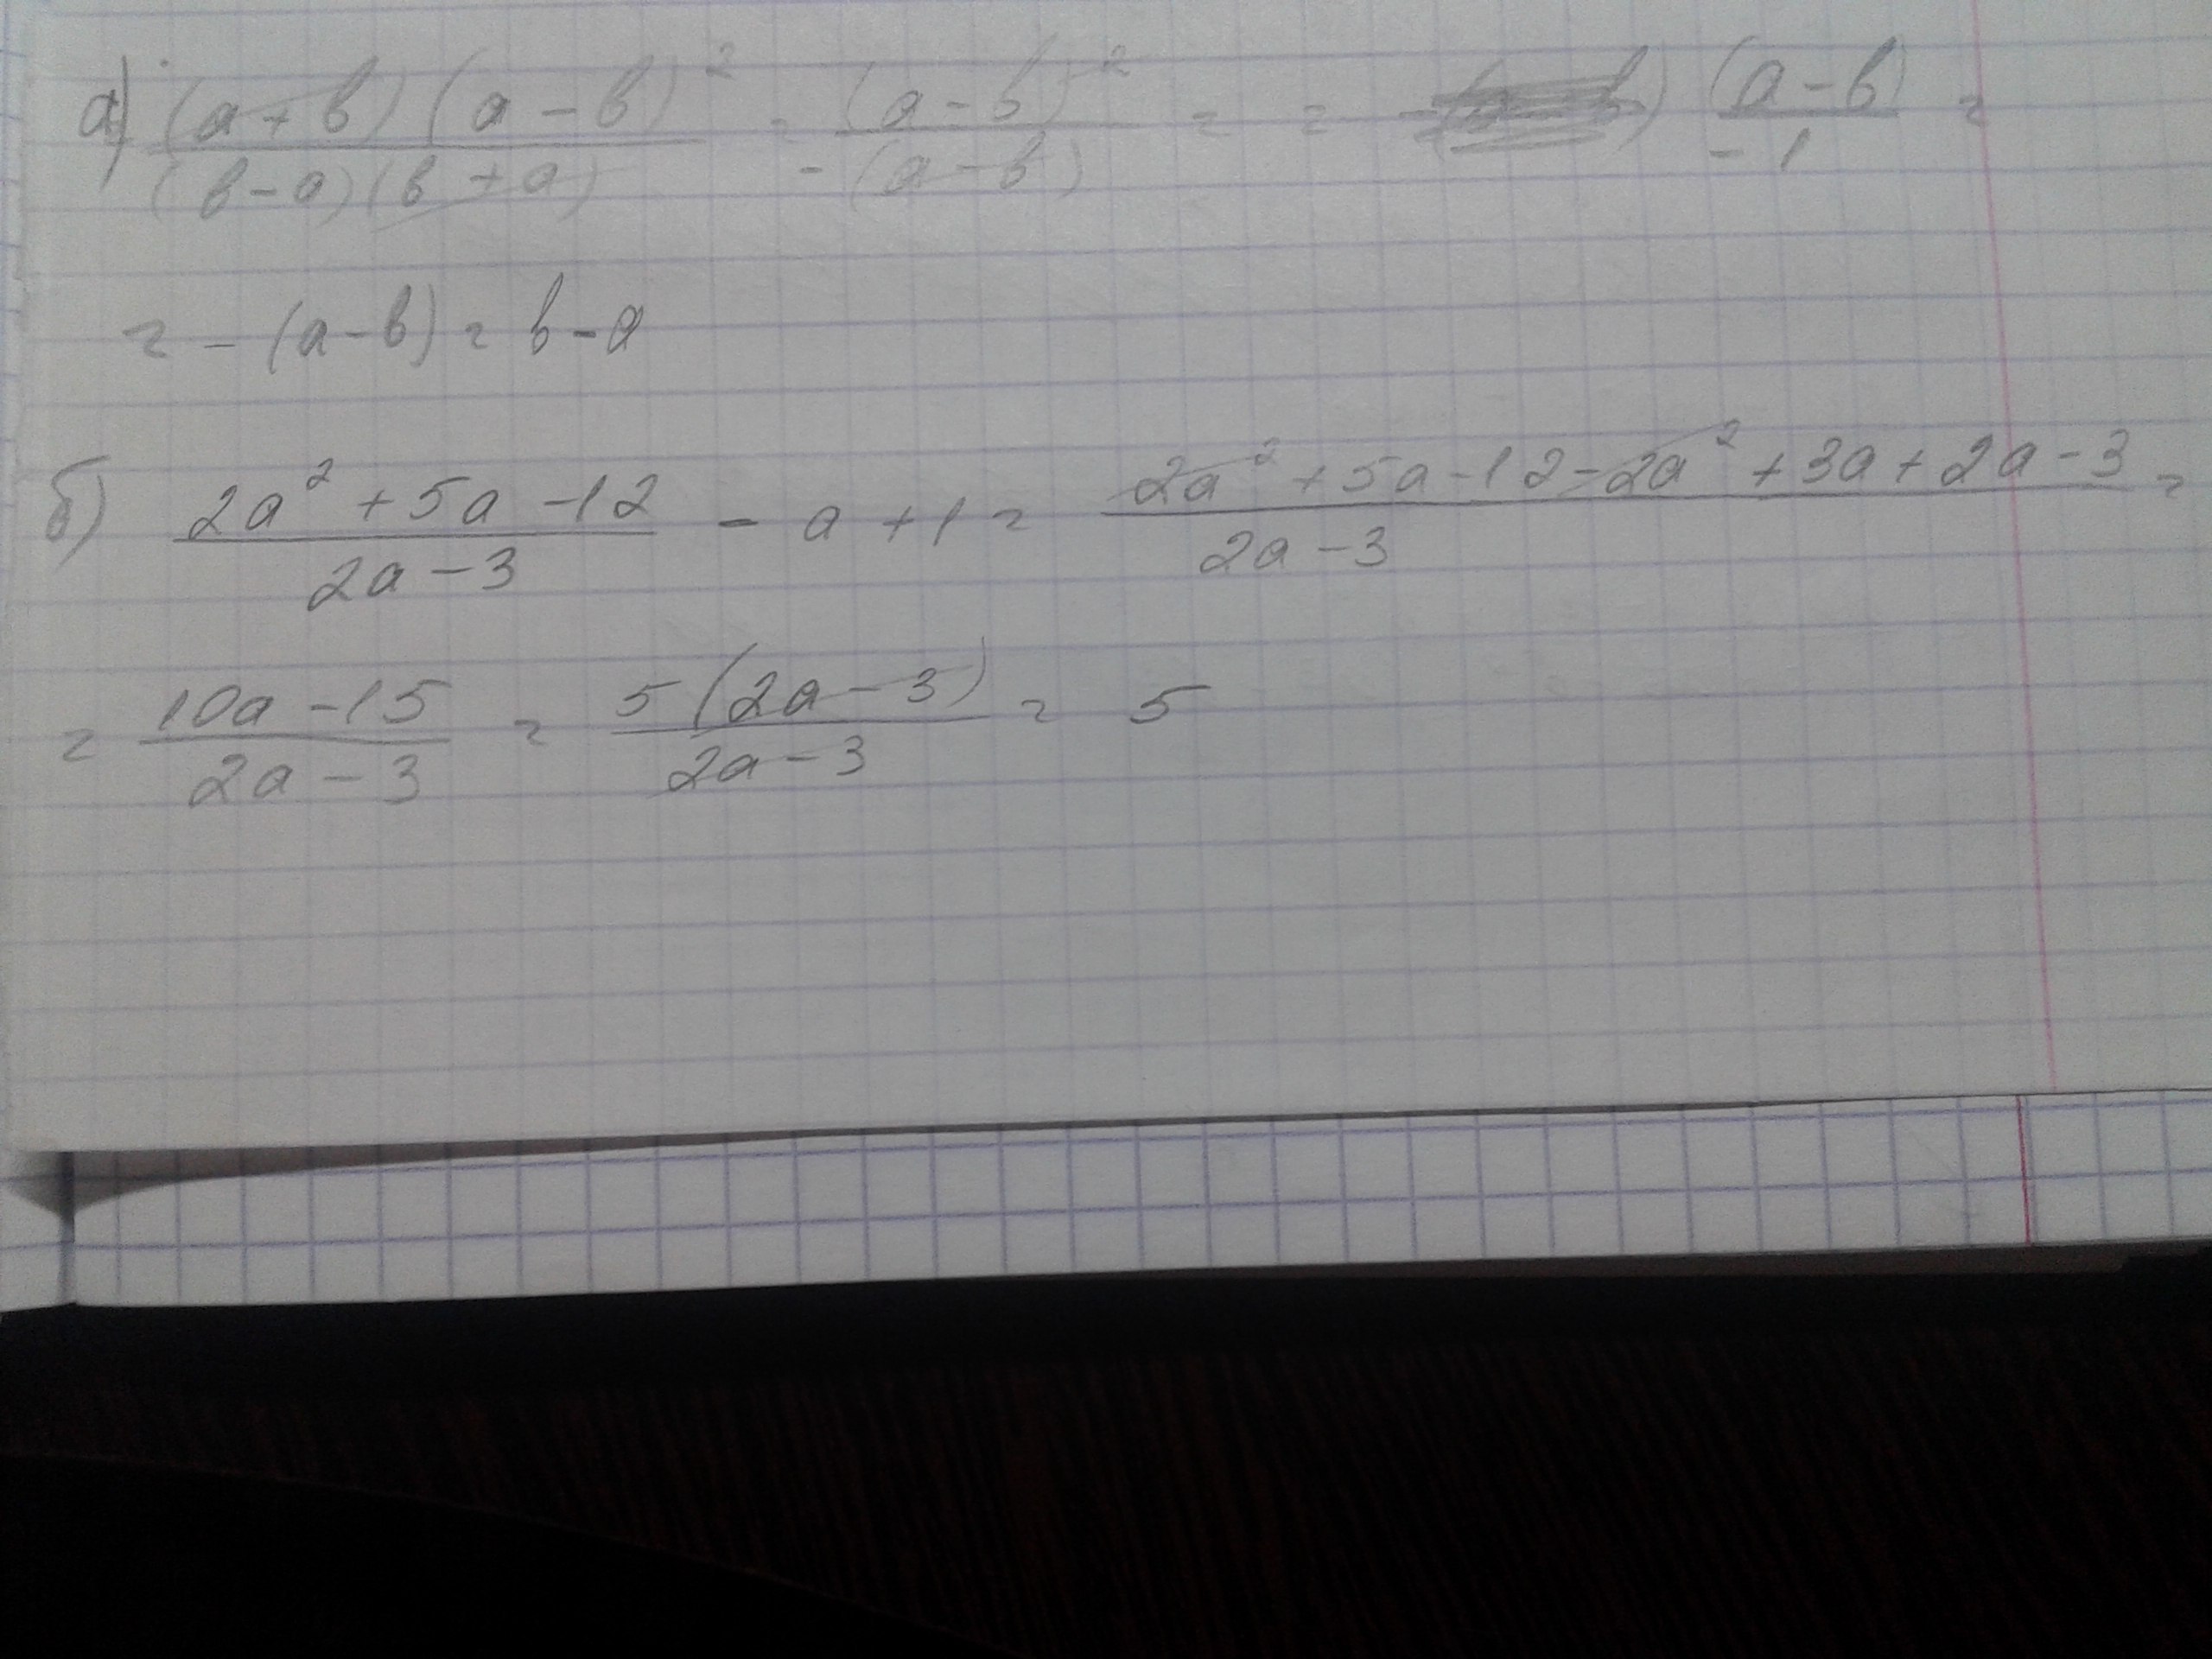 а) (a+b)(a-b)² / (b-a)(b+a) = (a-b)² / -(a-b) = = (a-b) / -1 =
= -(a-b) = b-a
б) 2a²+5a-12 / 2a-3 - a+1 = 2a²+5a-12-2a²+3a+2a-3 / 2a-3 =
= 10a-15 / 2a-3 = 5(2a-3) / 2a-3 = 5